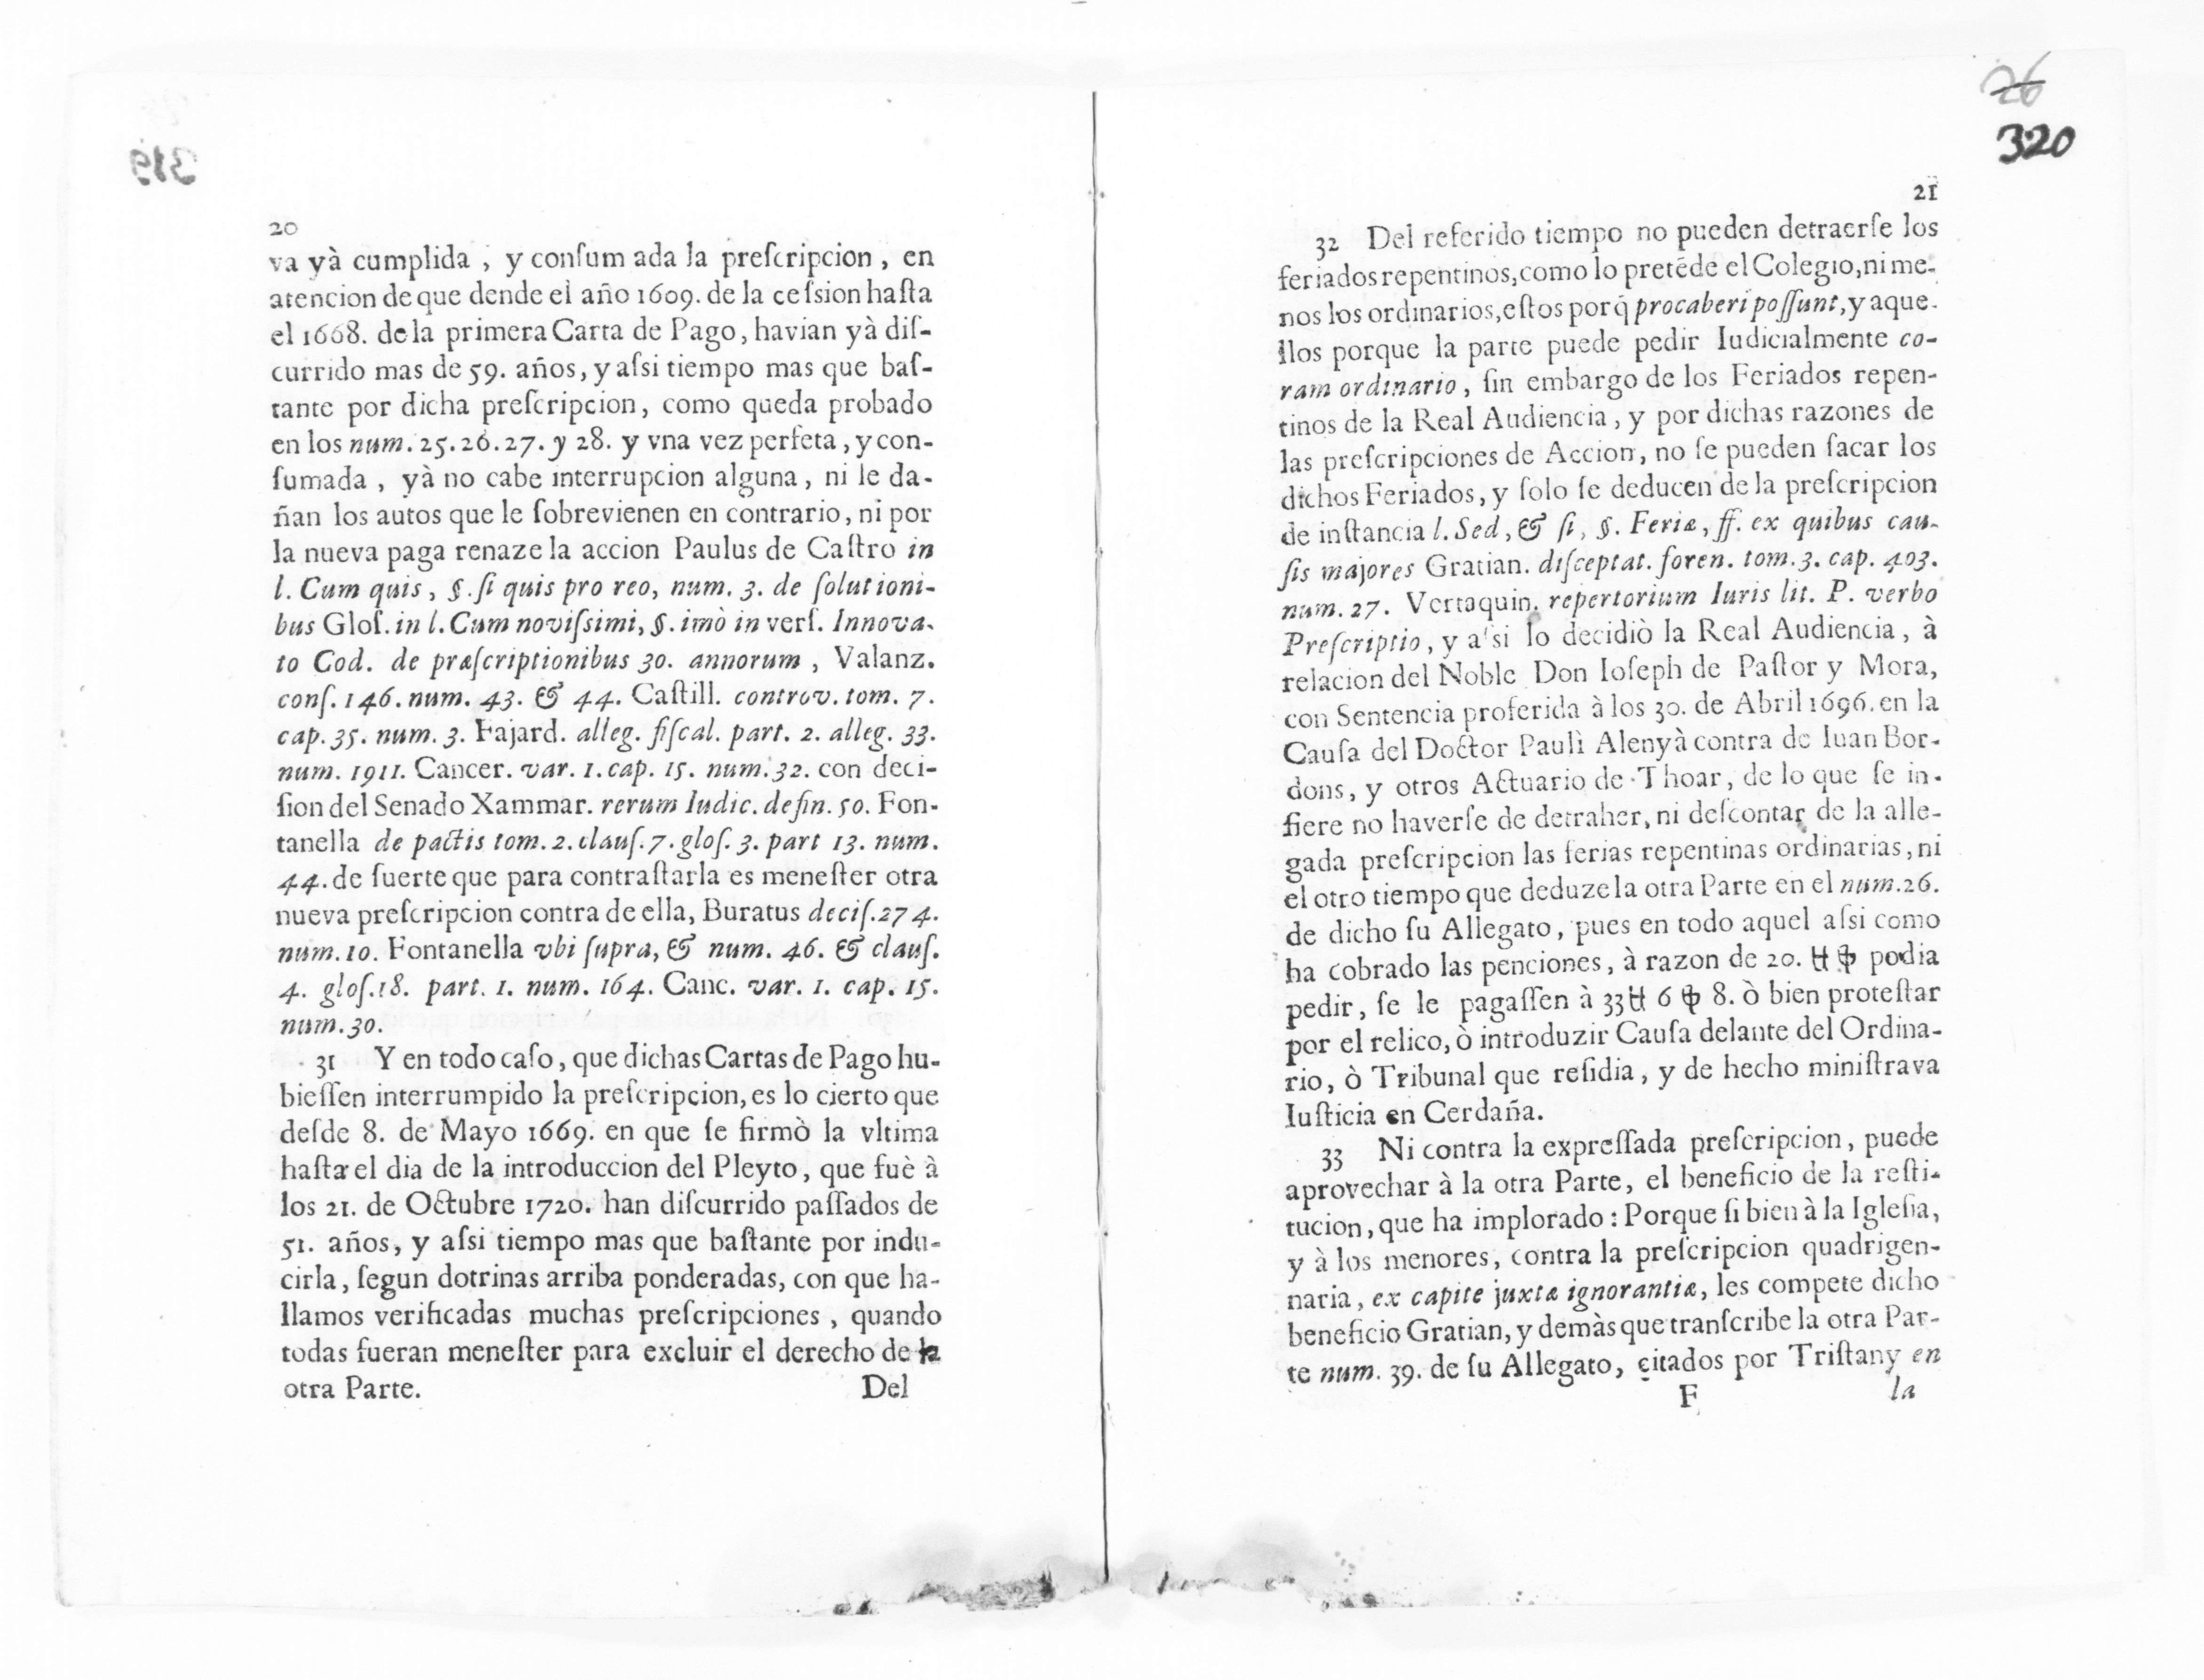 319
20
va yà cumplida, y conſum ada la preſcripcion, en
atencion de que dende el año 1609. de la ceſsion haſta
el 1668. de la primera Carta de Pago, havian yà diſ-
currido mas de 59. años, y aſsi tiempo mas que baſ-
tante por dicha preſcripcion, como queda probado
en los num. 25. 26. 27. y 28. y vna vez perfeta, y con-
ſumada, yà no cabe interrupcion alguna, ni le da-
ñan los autos que le ſobrevienen en contrario, ni por
la nueva paga renaze la accion Paulus de Caſtro in
l. Cum quis, §. ſi quis pro reo, num. 3. de ſolutioni-
bus Gloſ. in l. Cum noviſsimi, §. imò in verſ. Innova-
to Cod. de præſcriptionibus 30. annorum, Valanz.
conſ. 146. num. 43. & 44. Caſtill. controv. tom. 7.
cap. 35. num. 3. Fajard. alleg. fiſcal. part. 2. alleg. 33.
num. 1911. Cancer. var. 1. cap. 15. num. 32. con deci-
ſion del Senado Xammar. rerum Iudic. defin. 50. Fon-
tanella de pactis tom. 2. clauſ. 7. gloſ. 3. part 13. num.
44. de ſuerte que para contraſtarla es meneſter otra
nueva preſcripcion contra de ella, Buratus deciſ. 274.
num. 10. Fontanella vbi ſupra, & num. 46. & clauſ.
4. gloſ. 18. part. 1. num. 164. Canc. var. 1. cap. 15.
num. 30.
31 Y en todo caſo, que dichas Cartas de Pago hu-
bieſſen interrumpido la preſcripcion, es lo cierto que
deſde 8. de Mayo 1669. en que ſe firmò la vltima
haſta el dia de la introduccion del Pleyto, que fuè à
los 21. de Octubre 1720. han diſcurrido paſſados de
51. años, y aſsi tiempo mas que baſtante por indu-
cirla, ſegun dotrinas arriba ponderadas, con que ha-
llamos verificadas muchas preſcripciones, quando
todas fueran meneſter para excluir el derecho de la
otra Parte. Del
26
320
21
32 Del referido tiempo no pueden detraerſe los
feriados repentinos, como lo pretẽde el Colegio, ni me-
nos los ordinarios, eſtos porq̃ procaberi poſſunt, y aque-
llos porque la parte puede pedir Iudicialmente co-
ram ordinario, ſin embargo de los Feriados repen-
tinos de la Real Audiencia, y por dichas razones de
las preſcripciones de Accion, no ſe pueden ſacar los
dichos Feriados, y ſolo ſe deducen de la preſcripcion
de inſtancia l. Sed, & ſi, §. Feriæ, ff. ex quibus cau-
ſis majores Gratian. diſceptat. foren. tom. 3. cap. 403.
num. 27. Vertaquin. repertorium Iuris lit. P. verbo
Preſcriptio, y aſsi lo decidiò la Real Audiencia, à
relacion del Noble Don Ioſeph de Paſtor y Mora,
con Sentencia proferida à los 30. de Abril 1696. en la
Cauſa del Doctor Paulì Alenyà contra de Iuan Bor-
dons, y otros Actuario de Thoar, de lo que ſe in-
fiere no haverſe de detraher, ni deſcontar de la alle-
gada preſcripcion las ferias repentinas ordinarias, ni
el otro tiempo que deduze la otra Parte en el num. 26.
de dicho ſu Allegato, pues en todo aquel aſsi como
ha cobrado las penciones, à razon de 20. podia
pedir, ſe le pagaſſen à 33 6 8. ò bien proteſtar
por el relico, ò introduzir Cauſa delante del Ordina-
rio, ò Tribunal que reſidia, y de hecho miniſtrava
Iuſticia en Cerdaña.
33 Ni contra la expreſſada preſcripcion, puede
aprovechar à la otra Parte, el beneficio de la reſti-
tucion, que ha implorado: Porque ſi bien à la Igleſia,
y à los menores, contra la preſcripcion quadrigen-
naria, ex capite juxtæ ignorantiæ, les compete dicho
beneficio Gratian, y demàs que tranſcribe la otra Par-
te num. 39. de ſu Allegato, citados por Triſtany en
F la